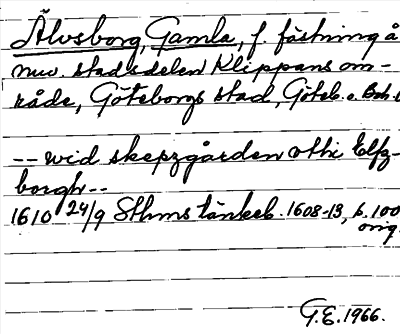 Älvsborg, Gamla, f. fästning å
nuv. stadsdelen Klippans om-
råde, Göteborgs stad, Göteb. o. Boh. l
-- wid skepzgården vthi Elfz-
borgh --
1610 24/9 Sthms tänkeb. 1608-13, s. 100
orig.
G.E. 1966.